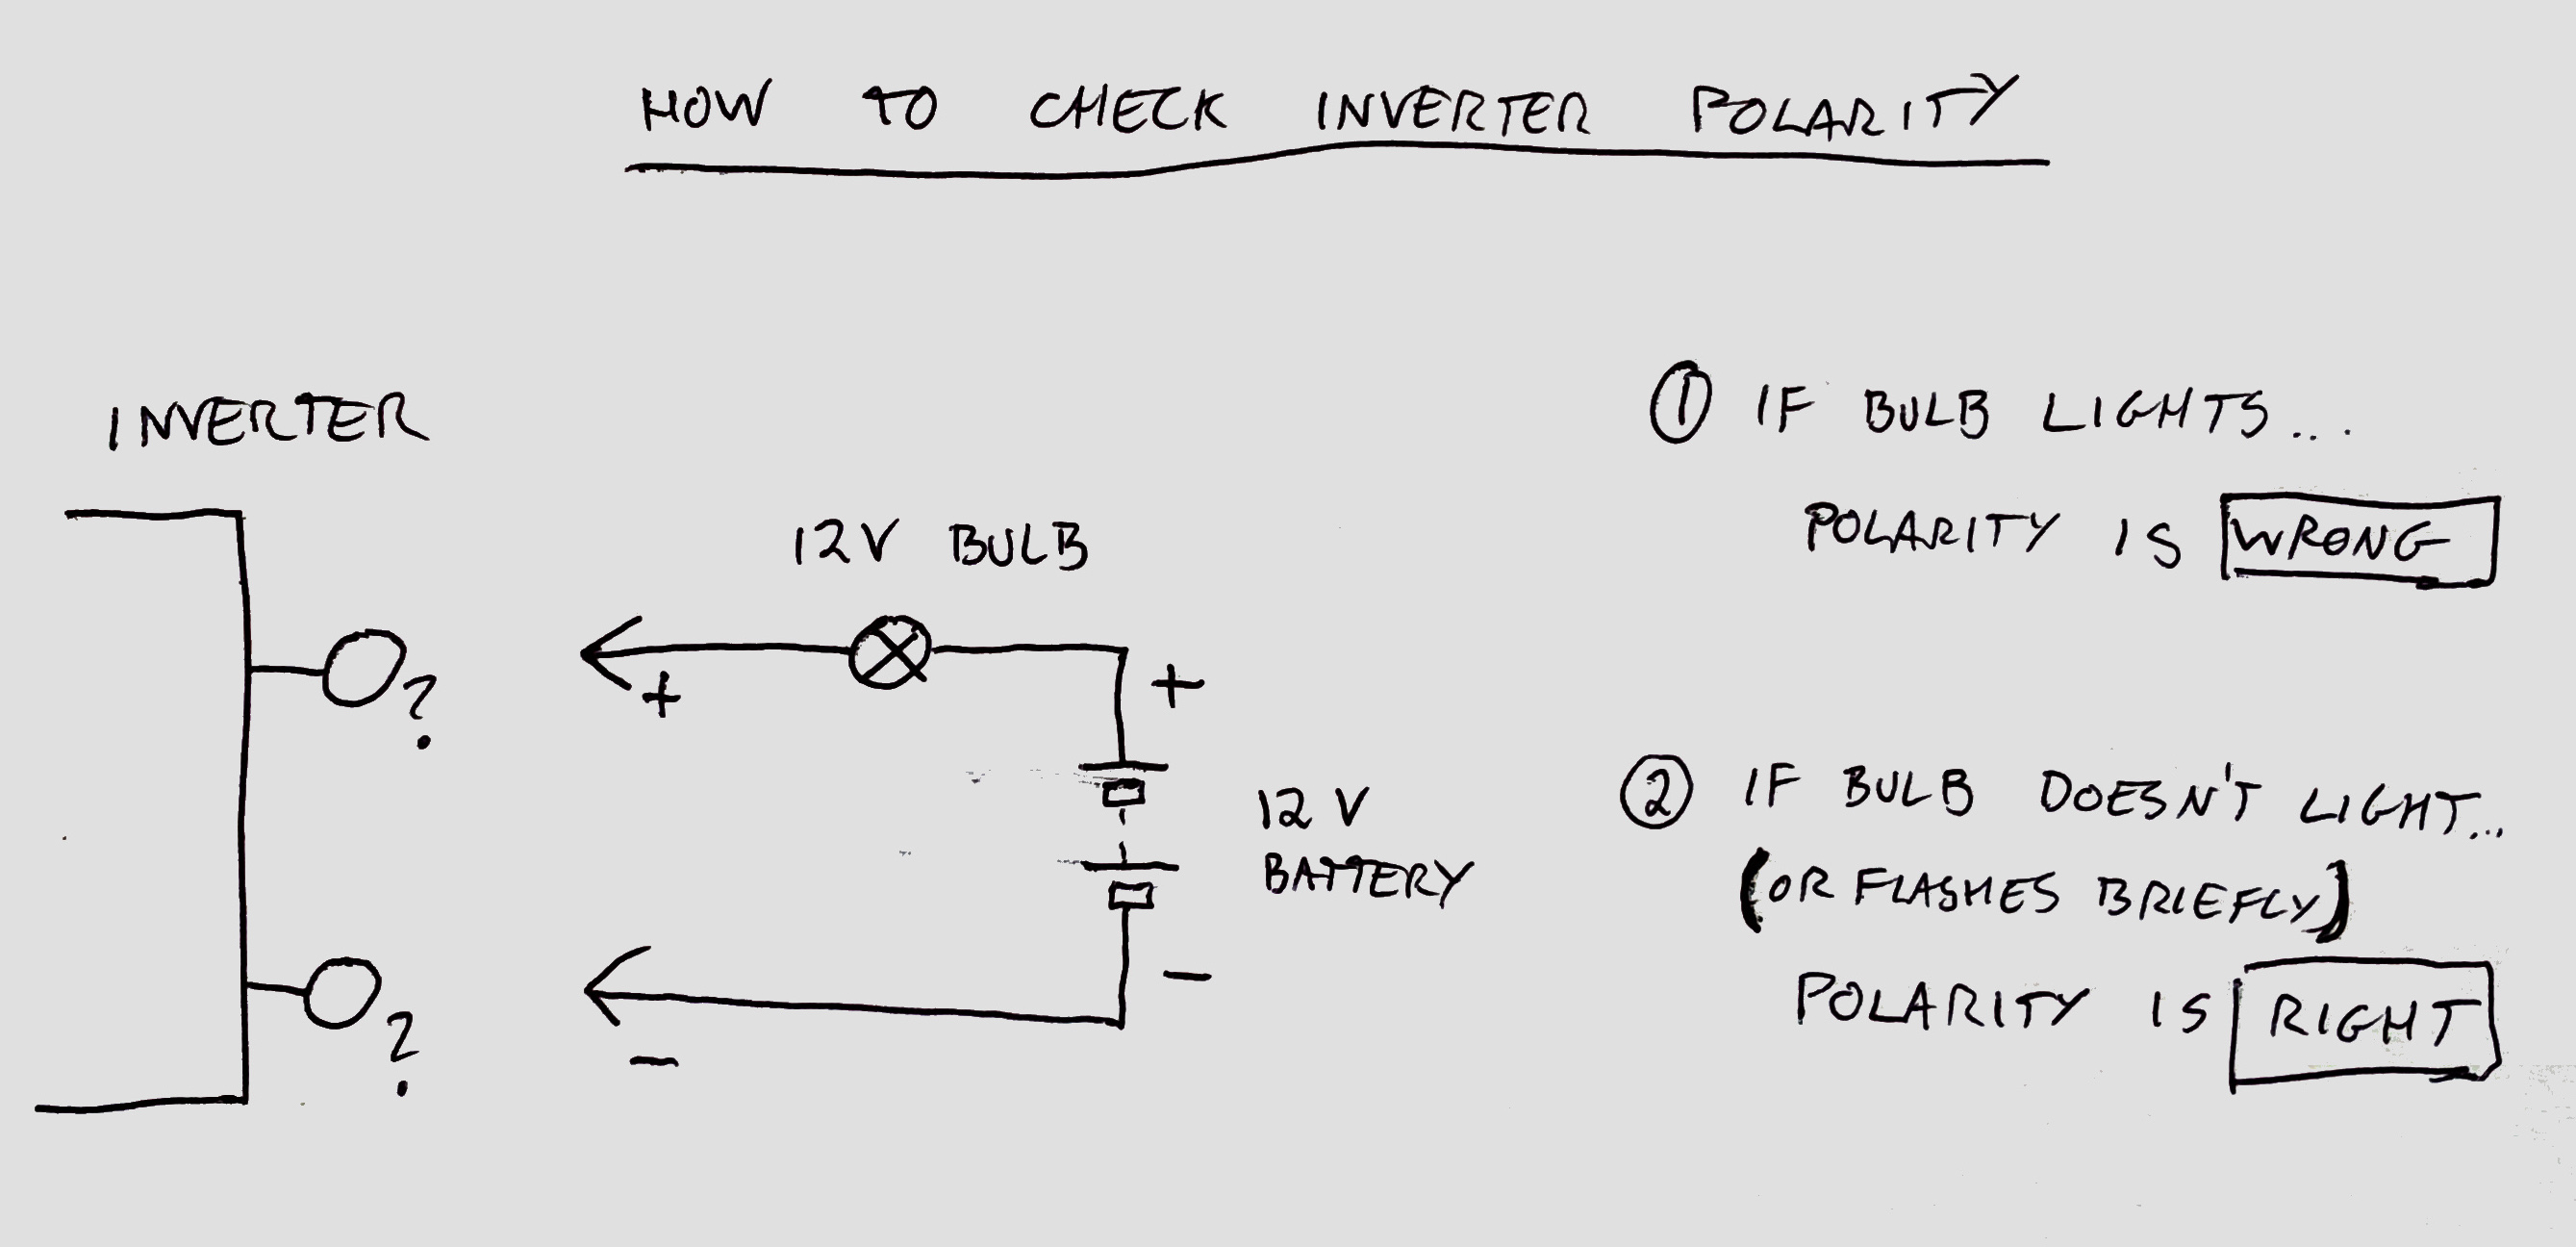 HOW TO CHECK INVERTER POLARITY
INVERTER
?
?
12V BULB
+
+
12V
BATTERY
-
-
① IF BULB LIGHTS...
POLARITY IS WRONG
② IF BULB DOESN'T LIGHT...
(OR FLASHES BRIEFLY)
POLARITY IS RIGHT